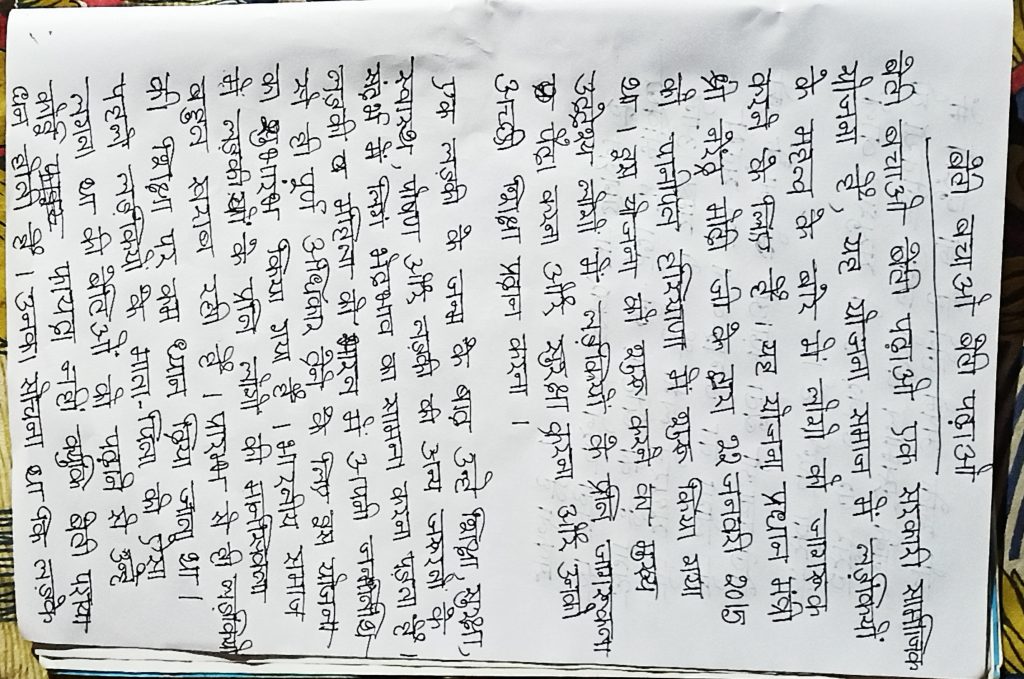 बेटी बचाओ बेटी पढ़ाओ
बेटी बचाओ बेटी पढ़ाओ एक सरकारी सामाजिक
योजना है, यह योजना समाज में लड़कियों
के महत्व के बारे में लोगो को जागरूक
करने के लिए है। यह योजना प्रधान मंत्री
श्री नरेंद्र मोदी जी के द्वारा 22 जनवरी 2015
को पानीपत हरियाणा में शुरू किया गया
था। इस योजना को शुरू करने का मुख्य
उद्देश्य लोगो में लड़कियो के प्रति जागरूकता
पैदा करना और सुरक्षा करना और उनको
उच्च शिक्षा प्रदान करना।
एक लड़की के जन्म के बाद उन्हे शिक्षा, सुरक्षा,
स्वास्थ, पोषण और लड़की की अन्य जरूरतो के
संदर्भ में लिंग भेदभाव का सामना करना पड़ता है।
लड़की व महिला को भारत में उनकी जन्मतिथि
से ही पूर्ण अधिकार देने के लिए इस योजना
का शुभारंभ किया गया है। भारतीय समाज
में लड़कीयों के प्रति लोगो की मानसिकता
बहुत खराब रही है। प्रारंभ से ही लड़कियो
की शिक्षा पर कम ध्यान दिया जाता था।
पहले लड़कियो के माता-पिता को ऐसा
लगता था की बेटिओं को पढ़ाने से उन्हे
कोई फायदा नहीं क्युकि बेटी पराया
धन होती है। उनका सोचना था एक लड़के